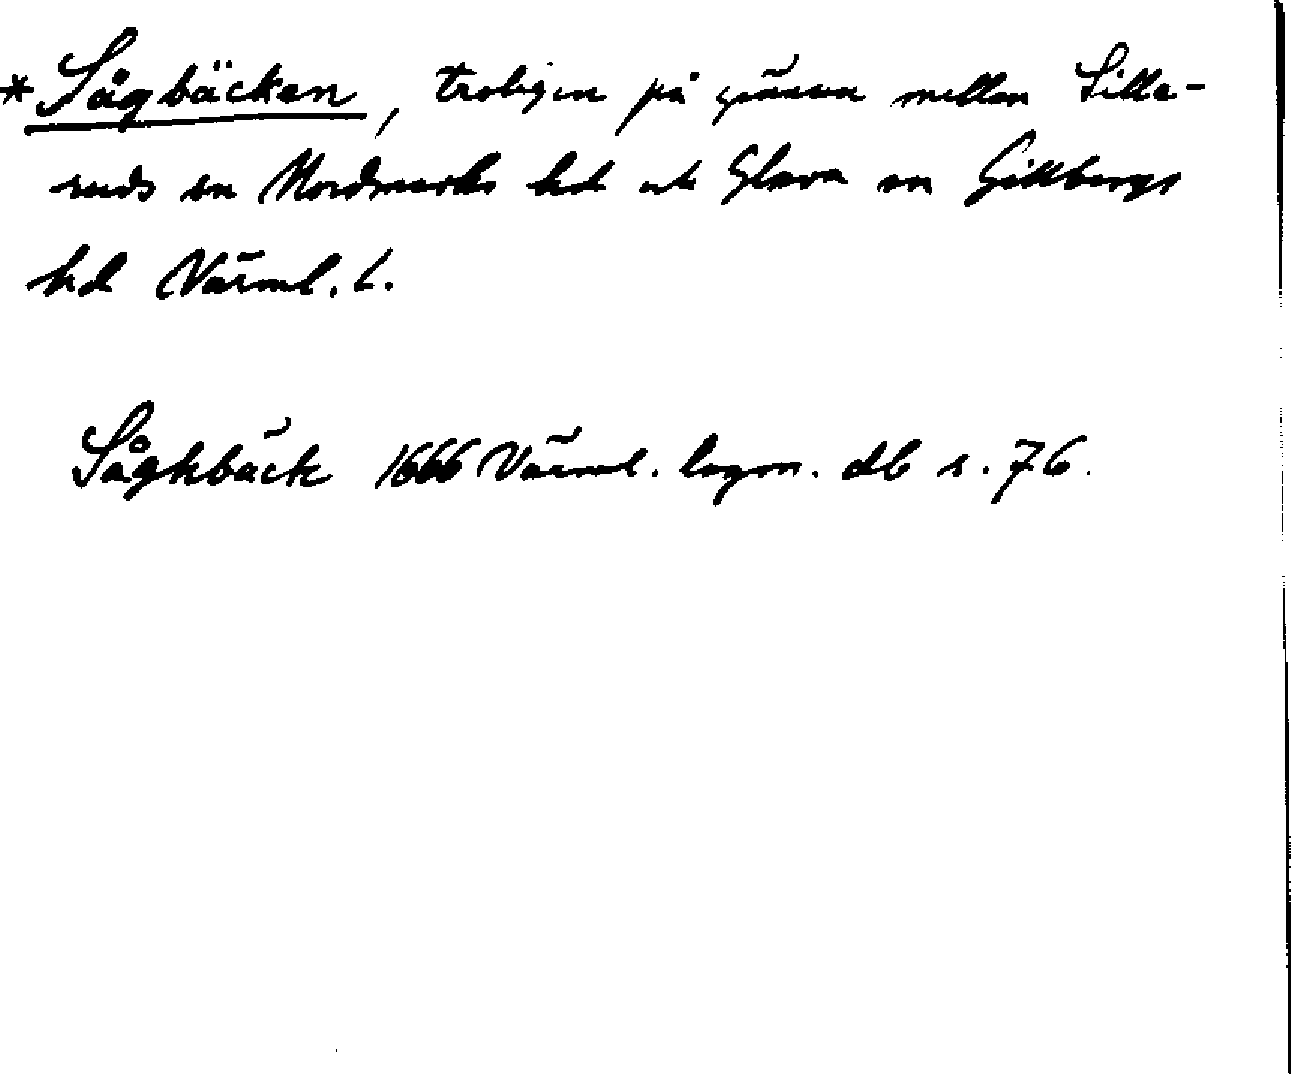 *Sågbäcken, troligen på gränsen mellan Sille-
ruds sn Nordmarks hd och Glava sn Gillbergs
hd Värml. l.
Såghbäck 1666 Värml. lagm. db s. 76.